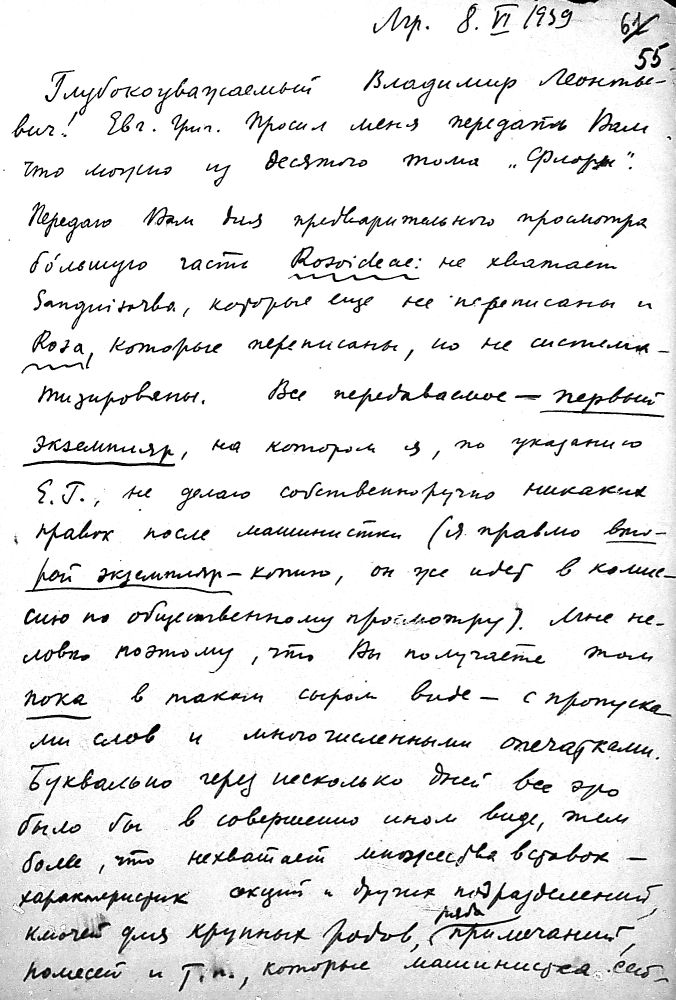 Лгр. 8. VI 1939 61
55
Глубокоуважаемый Владимир Леонтье-
вич! Евг. Григ. просил меня передать Вам
что можно из десятого тома „Флоры".
Передаю Вам для предварительного просмотра
бо́льшую часть Rosoideae: не хватает
Sanguisorba, которые еще не переписаны и
Rosa, которые переписаны, но не система-
тизированы. Все передаваемое — первый
экземпляр, на котором я, по указанию
Е.Г., не делаю собственноручно никаких
правок после машинистки (я правлю вто-
рой экземпляр – копию, он же идет в комис-
сию по общественному просмотру). Мне не-
ловко поэтому, что Вы получаете том
пока в таком сыром виде — с пропуска
ми слов и многочисленными опечатками.
Буквально через несколько дней все это
было бы в совершенно ином виде, тем
более, что нехватает множества вставок —
характеристик секций и других подразделений,
ключей для крупных родов, ряда примечаний,
помесей и т.п., которые машинистка сей-